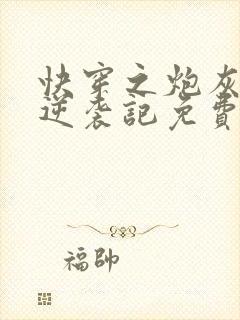 快穿之炮灰
逆袭記免費
福帥